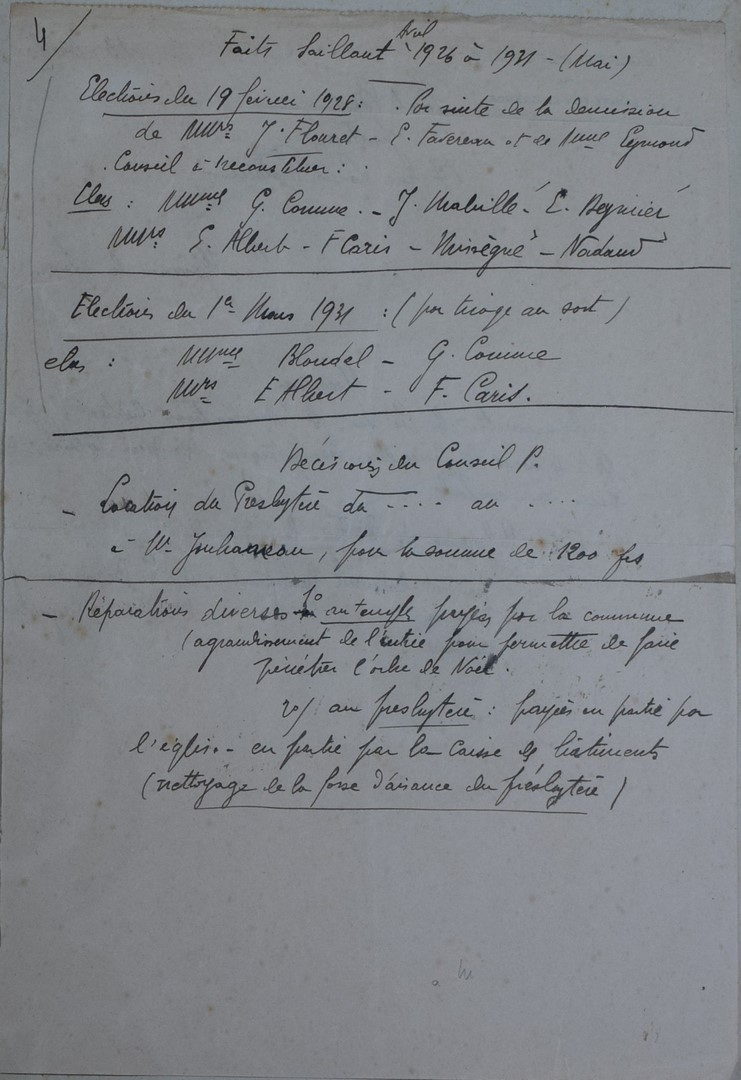 4/
Faits Saillant Avril 1926 à 1931 - (Mai)
Elections du 19 février 1928 : Par suite de la demission
de Mmrs J. Flouret - E. Favereau et de Mme Eymond
Conseil à reconstituer :
Elus : Mmmes G. Comme - J. Malville - E. Beynier
Mmrs E. Albert - F Caris - - Nadaud
Elections du 1er Mars 1931 : (par tirage au sort)
elus : Mmmes Blondel - G. Comme
Mmrs E Albert - F. Caris.
Décisions du Conseil P.
- Location du Presbytère du .... au ....
à Mr , pour la somme de 1200 frs
- Réparations diverses 1° au temple payées par la commune
(agrandissement de l'entrée pour permettre de faire
pénétrer l'arbre de Noël.
2°/ au presbytère : payées en partie par
l'église - en partie par la Caisse des bâtiments
(nettoyage de la fosse d'aisance du presbytère)